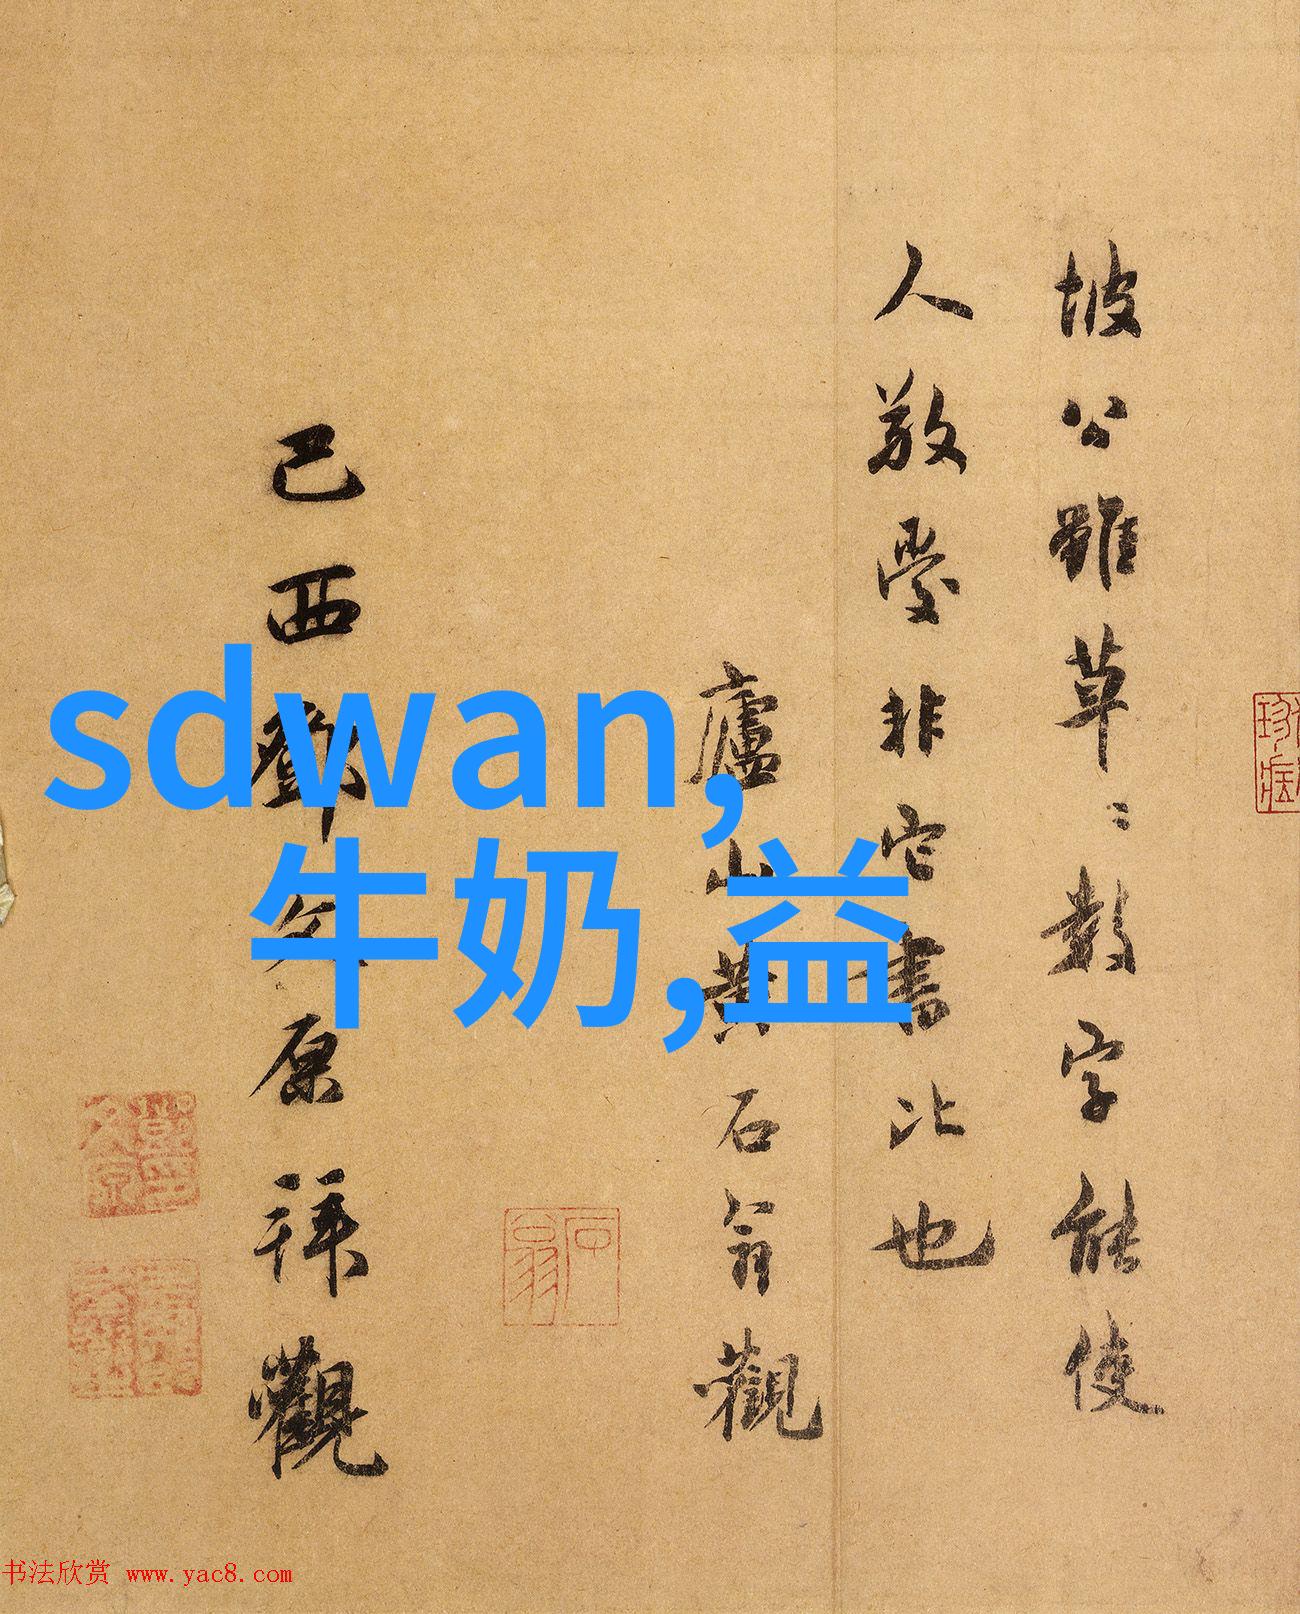 坡公雖草〻數字能使
人敬愛非它書比也
廬山黄石翁觀
己酉鄧文原拜觀
sdwan,
牛奶,益
石翁
鄧文原
书法欣赏 www.yac8.com